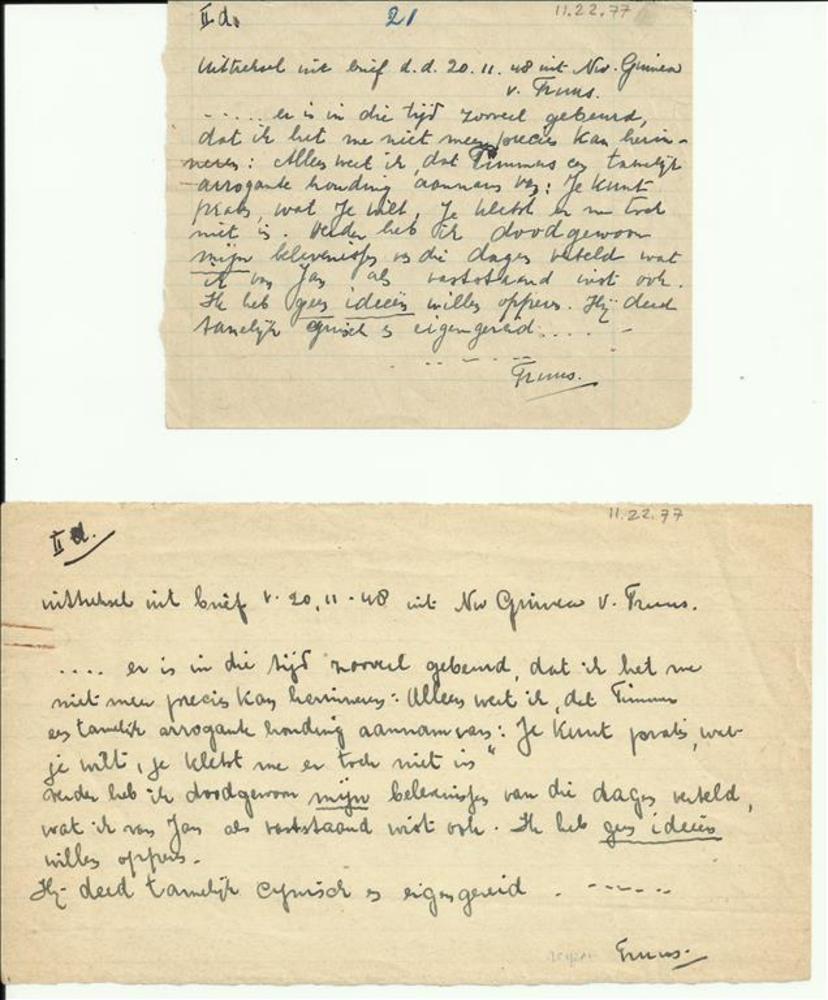 II d. 21 11.22.77
Uittreksel uit brief d.d. 20.11.48 uit Nw. Guinea
v. Truus.
..... er is in die tijd zooveel gebeurd,
dat ik het me niet meer precies kan herin-
neren: Alleen weet ik, dat Timmers een tamelijk
arrogante houding aannam van: Je kunt
praten, wat je wilt, je kletst er me toch
niet in. Verder heb ik doodgewoon
mijn belevenissen van die dagen verteld wat
ik van Jan als vaststaand wist ook.
Ik heb geen ideeën willen oppern. Hij deed
tamelijk cynisch en eigengereid.....
Truus.
11.22.77
II d.
uittreksel uit brief v. 20.11.48 uit Nw Guinea v. Truus.
.... er is in die tijd zooveel gebeurd, dat ik het me
niet meer precies kan herinneren: Alleen weet ik, dat Timmer
een tamelijk arrogante houding aannam van: Je kunt praten, wat
je wilt, je kletst me er toch niet in"
Verder heb ik doodgewoon mijn belevenissen van die dagen verteld,
wat ik van Jan als vaststaand wist ook. Ik heb geen ideeën
willen oppern.
Hij deed tamelijk cynisch en eigengereid . -----
Truus.